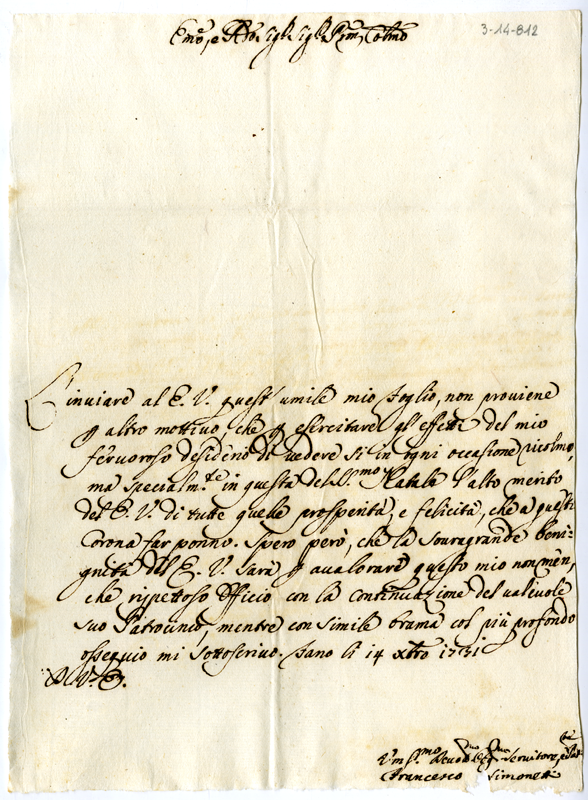 Emo, e Rmo Sigr. Sigr. Pron. Colmo
3-14-812
L'inviare al E. V. quest'umile mio foglio, non proviene
p altro mottivo, che p esercitare gl'effetti del mio
fervoroso desiderio di vedere si in ogni occasione ricolmo,
ma specialm.te in questa del SS.mo Natale l'alto merito
del E. V. di tutte quelle prosperità, e felicità, che a questi
Corona far ponno. Spero però, che la souragrande beni=
gnità dell E. V. sarà p avalorare questo mio non men,
che rispettoso Officio con la continuazione del valevole
suo Patrocinio, mentre con simile brama col più profondo
ossequio mi sottoscrivo. Fano li 14 xbro 1731
D. V. E.
Vm.s.mo Devo.mo Obb.mo Servitore
Francesco Simonetti